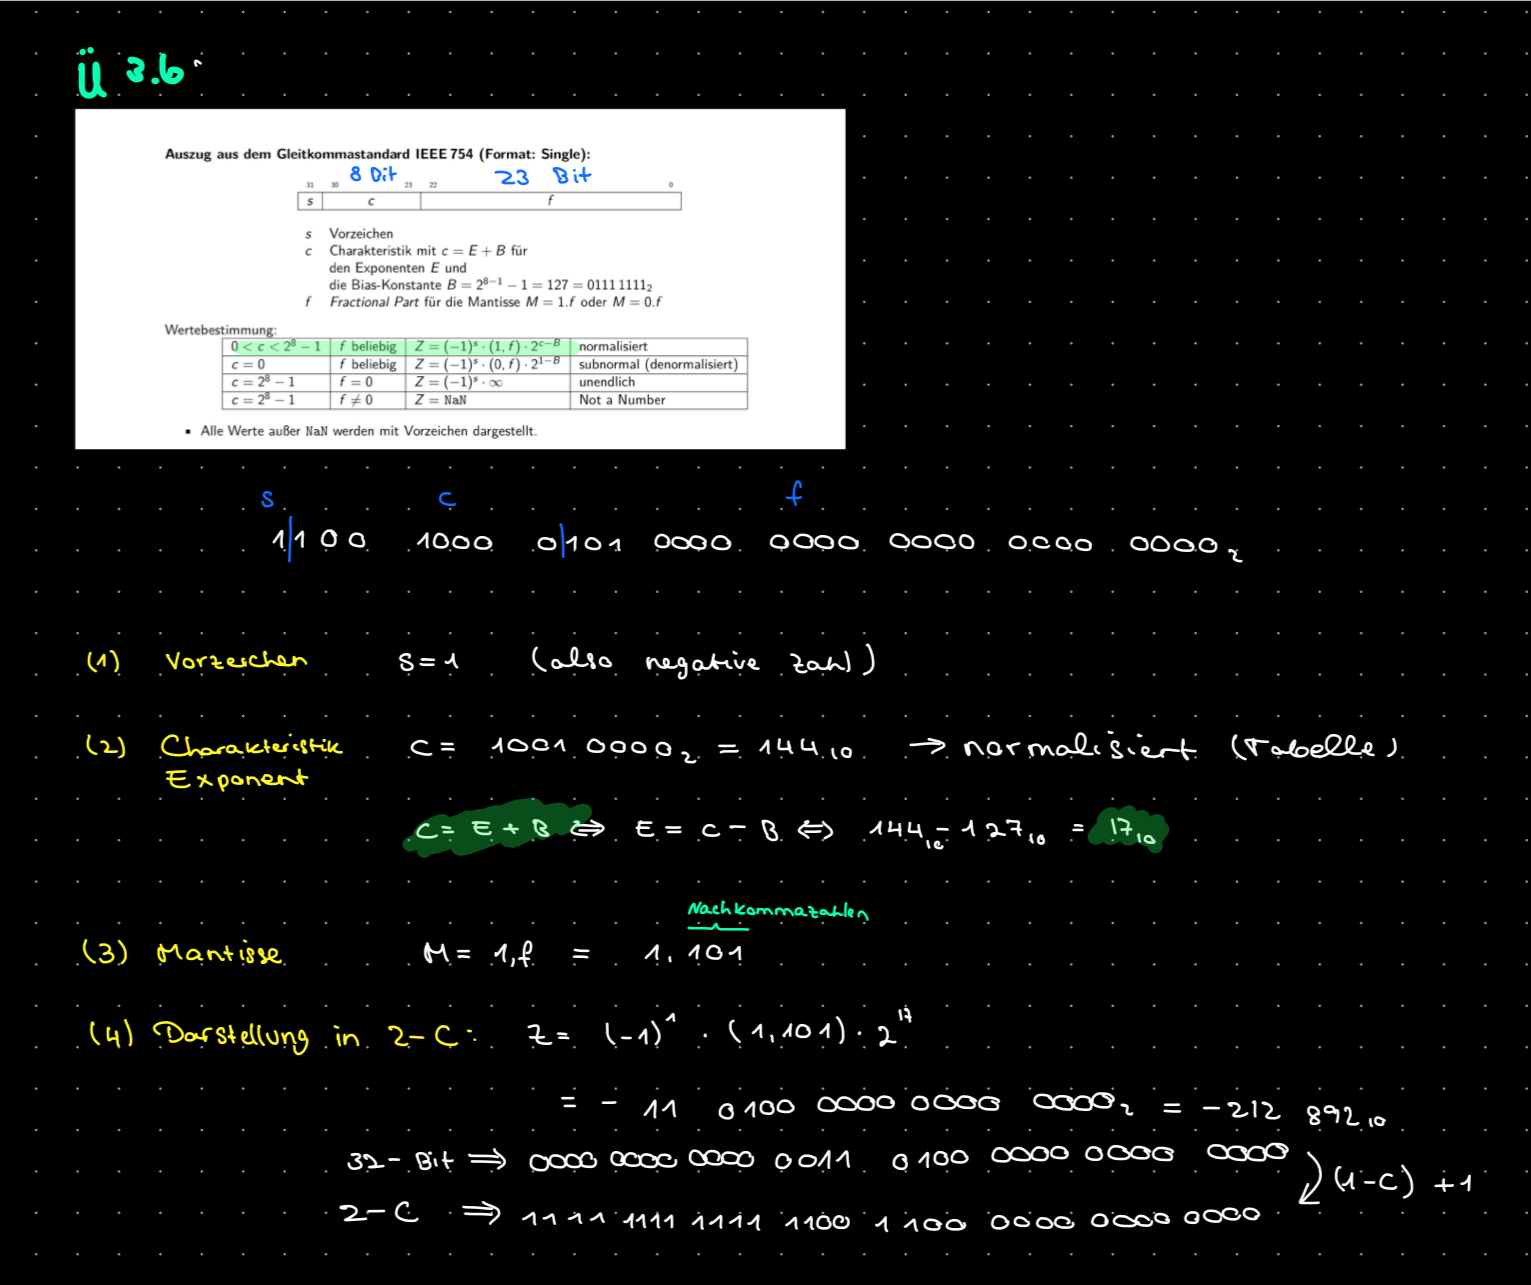 Ü 3.6
Auszug aus dem Gleitkommastandard IEEE 754 (Format: Single):
8 Bit 23 Bit
31 30 23 22 0
s c f
s Vorzeichen
c Charakteristik mit c = E + B für
den Exponenten E und
die Bias-Konstante B = 2⁸⁻¹ − 1 = 127 = 0111 1111₂
f Fractional Part für die Mantisse M = 1.f oder M = 0.f
Wertebestimmung:
0 < c < 2⁸ − 1 f beliebig Z = (−1)ˢ · (1, f) · 2ᶜ⁻ᴮ normalisiert
c = 0 f beliebig Z = (−1)ˢ · (0, f) · 2¹⁻ᴮ subnormal (denormalisiert)
c = 2⁸ − 1 f = 0 Z = (−1)ˢ · ∞ unendlich
c = 2⁸ − 1 f ≠ 0 Z = NaN Not a Number
▪ Alle Werte außer NaN werden mit Vorzeichen dargestellt.
s c f
1|100 1000 0|101 0000 0000 0000 0000 0000₂
(1) Vorzeichen s = 1 (also negative Zahl)
(2) Charakteristik c = 1001 0000₂ = 144₁₀ → normalisiert (Tabelle)
Exponent
C = E + B ⇔ E = C − B ⇔ 144₁₀ − 127₁₀ = 17₁₀
Nachkommazahlen
(3) Mantisse M = 1,f = 1,101
(4) Darstellung in 2-C: Z = (−1)¹ · (1,101) · 2¹⁷
= − 11 0100 0000 0000 0000₂ = −212 892₁₀
32-Bit ⇒ 0000 0000 0000 0011 0100 0000 0000 0000
(1-C) + 1
2-C ⇒ 1111 1111 1111 1100 1100 0000 0000 0000